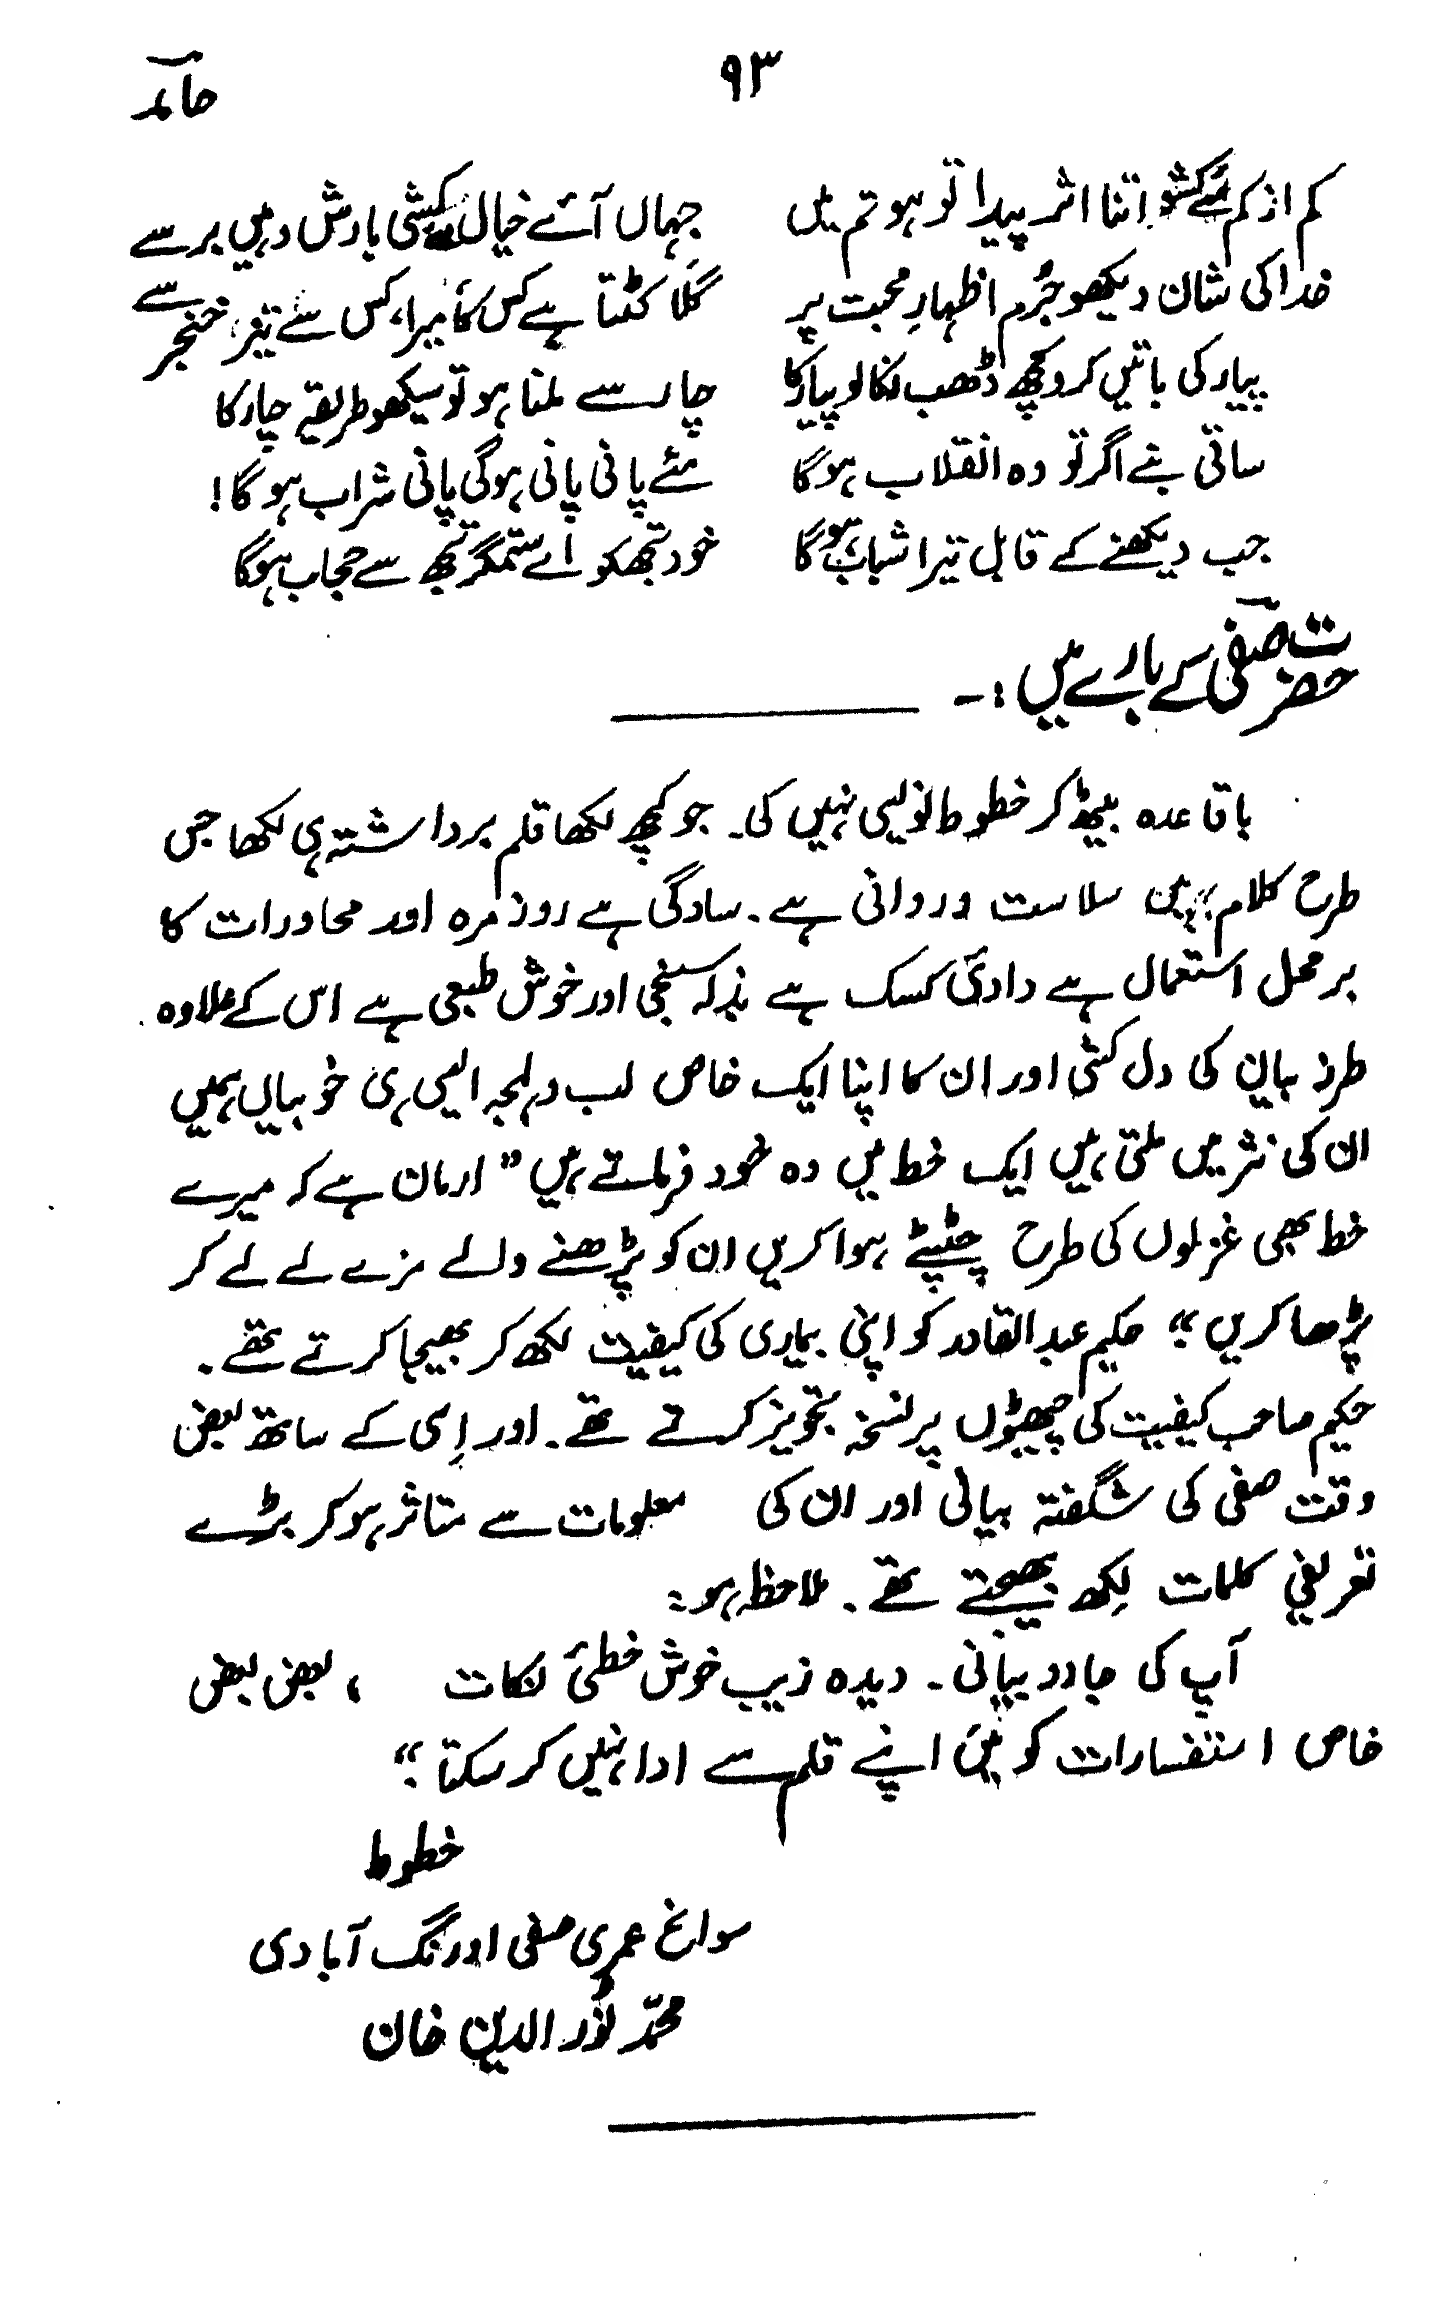 ۹۳
حامد
کم از کم مے کشو اتنا اثر پیدا تو ہو تم میں
جہاں آئے خیالِ مے کشی بارش وہیں برسے
خدا کی شان دیکھو جُرم اظہارِ محبت پر
گلا کٹتا ہے کس کا، میرا، کس سے تیغ، خنجر سے
پیار کی باتیں کرو کچھ ڈھب نکالو پیار کا
چار سے ملنا ہو تو سیکھو طریقے چار کا
ساقی بنے اگر تو وہ انقلاب ہوگا
مئے پانی پانی ہوگی پانی شراب ہوگا!
جب دیکھنے کے قابل تیرا شباب ہوگا
خود تجھ کو اے ستمگر تجھ سے حجاب ہوگا
حضرت صفیؔ کے بارے میں :-
باقاعدہ بیٹھ کر خطوط نویسی نہیں کی۔ جو کچھ لکھا قلم برداشتہ ہی لکھا جس
طرح کلام میں سلاست و روانی ہے۔ سادگی ہے روز مرہ اور محاورات کا
بر محل استعمال ہے کسک ہے بذلہ سنجی اور خوش طبعی ہے اس کے علاوہ
طرز بیان کی دل کشی اور ان کا اپنا ایک خاص لب و لہجہ ایسی ہی خوبیاں ہمیں
ان کی نثر میں ملتی ہیں ایک خط میں وہ خود فرماتے ہیں ”ارمان ہے کہ میرے
خط بھی غزلوں کی طرح چٹپٹے ہوا کریں ان کو پڑھنے والے مزے لے لے کر
پڑھا کریں“ حکیم عبدالقادر کو اپنی بیماری کی کیفیت لکھ کر بھیجا کرتے تھے۔
حکیم صاحب کیفیت کی چھیٹوں پر نسخہ تجویز کرتے تھے۔ اور اِسی کے ساتھ بعض
وقت صفی کی شگفتہ بیانی اور ان کی معلومات سے متاثر ہو کر بڑے
تعریفی کلمات لِکھ بھیجتے تھے۔ ملاحظہ ہو:
آپ کی جادو بیانی۔ دیدہ زیب خوش خطیٔ نکات ، بعض بعض
خاص استفسارات کو میں اپنے قلم سے ادا نہیں کر سکتا“
خطوط
سوانح عمری صفی اورنگ آبادی
محمّد نُور الدین خان